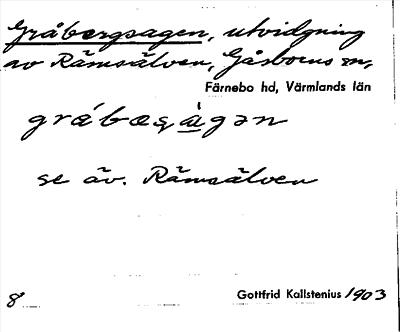 Gråbergsagen, utvidgning
av Rämsälven, Gåsborns sn,
Färnebo hd, Värmlands län
gråbæșàgən
se äv. Rämsälven
8 Gottfrid Kallstenius 1903